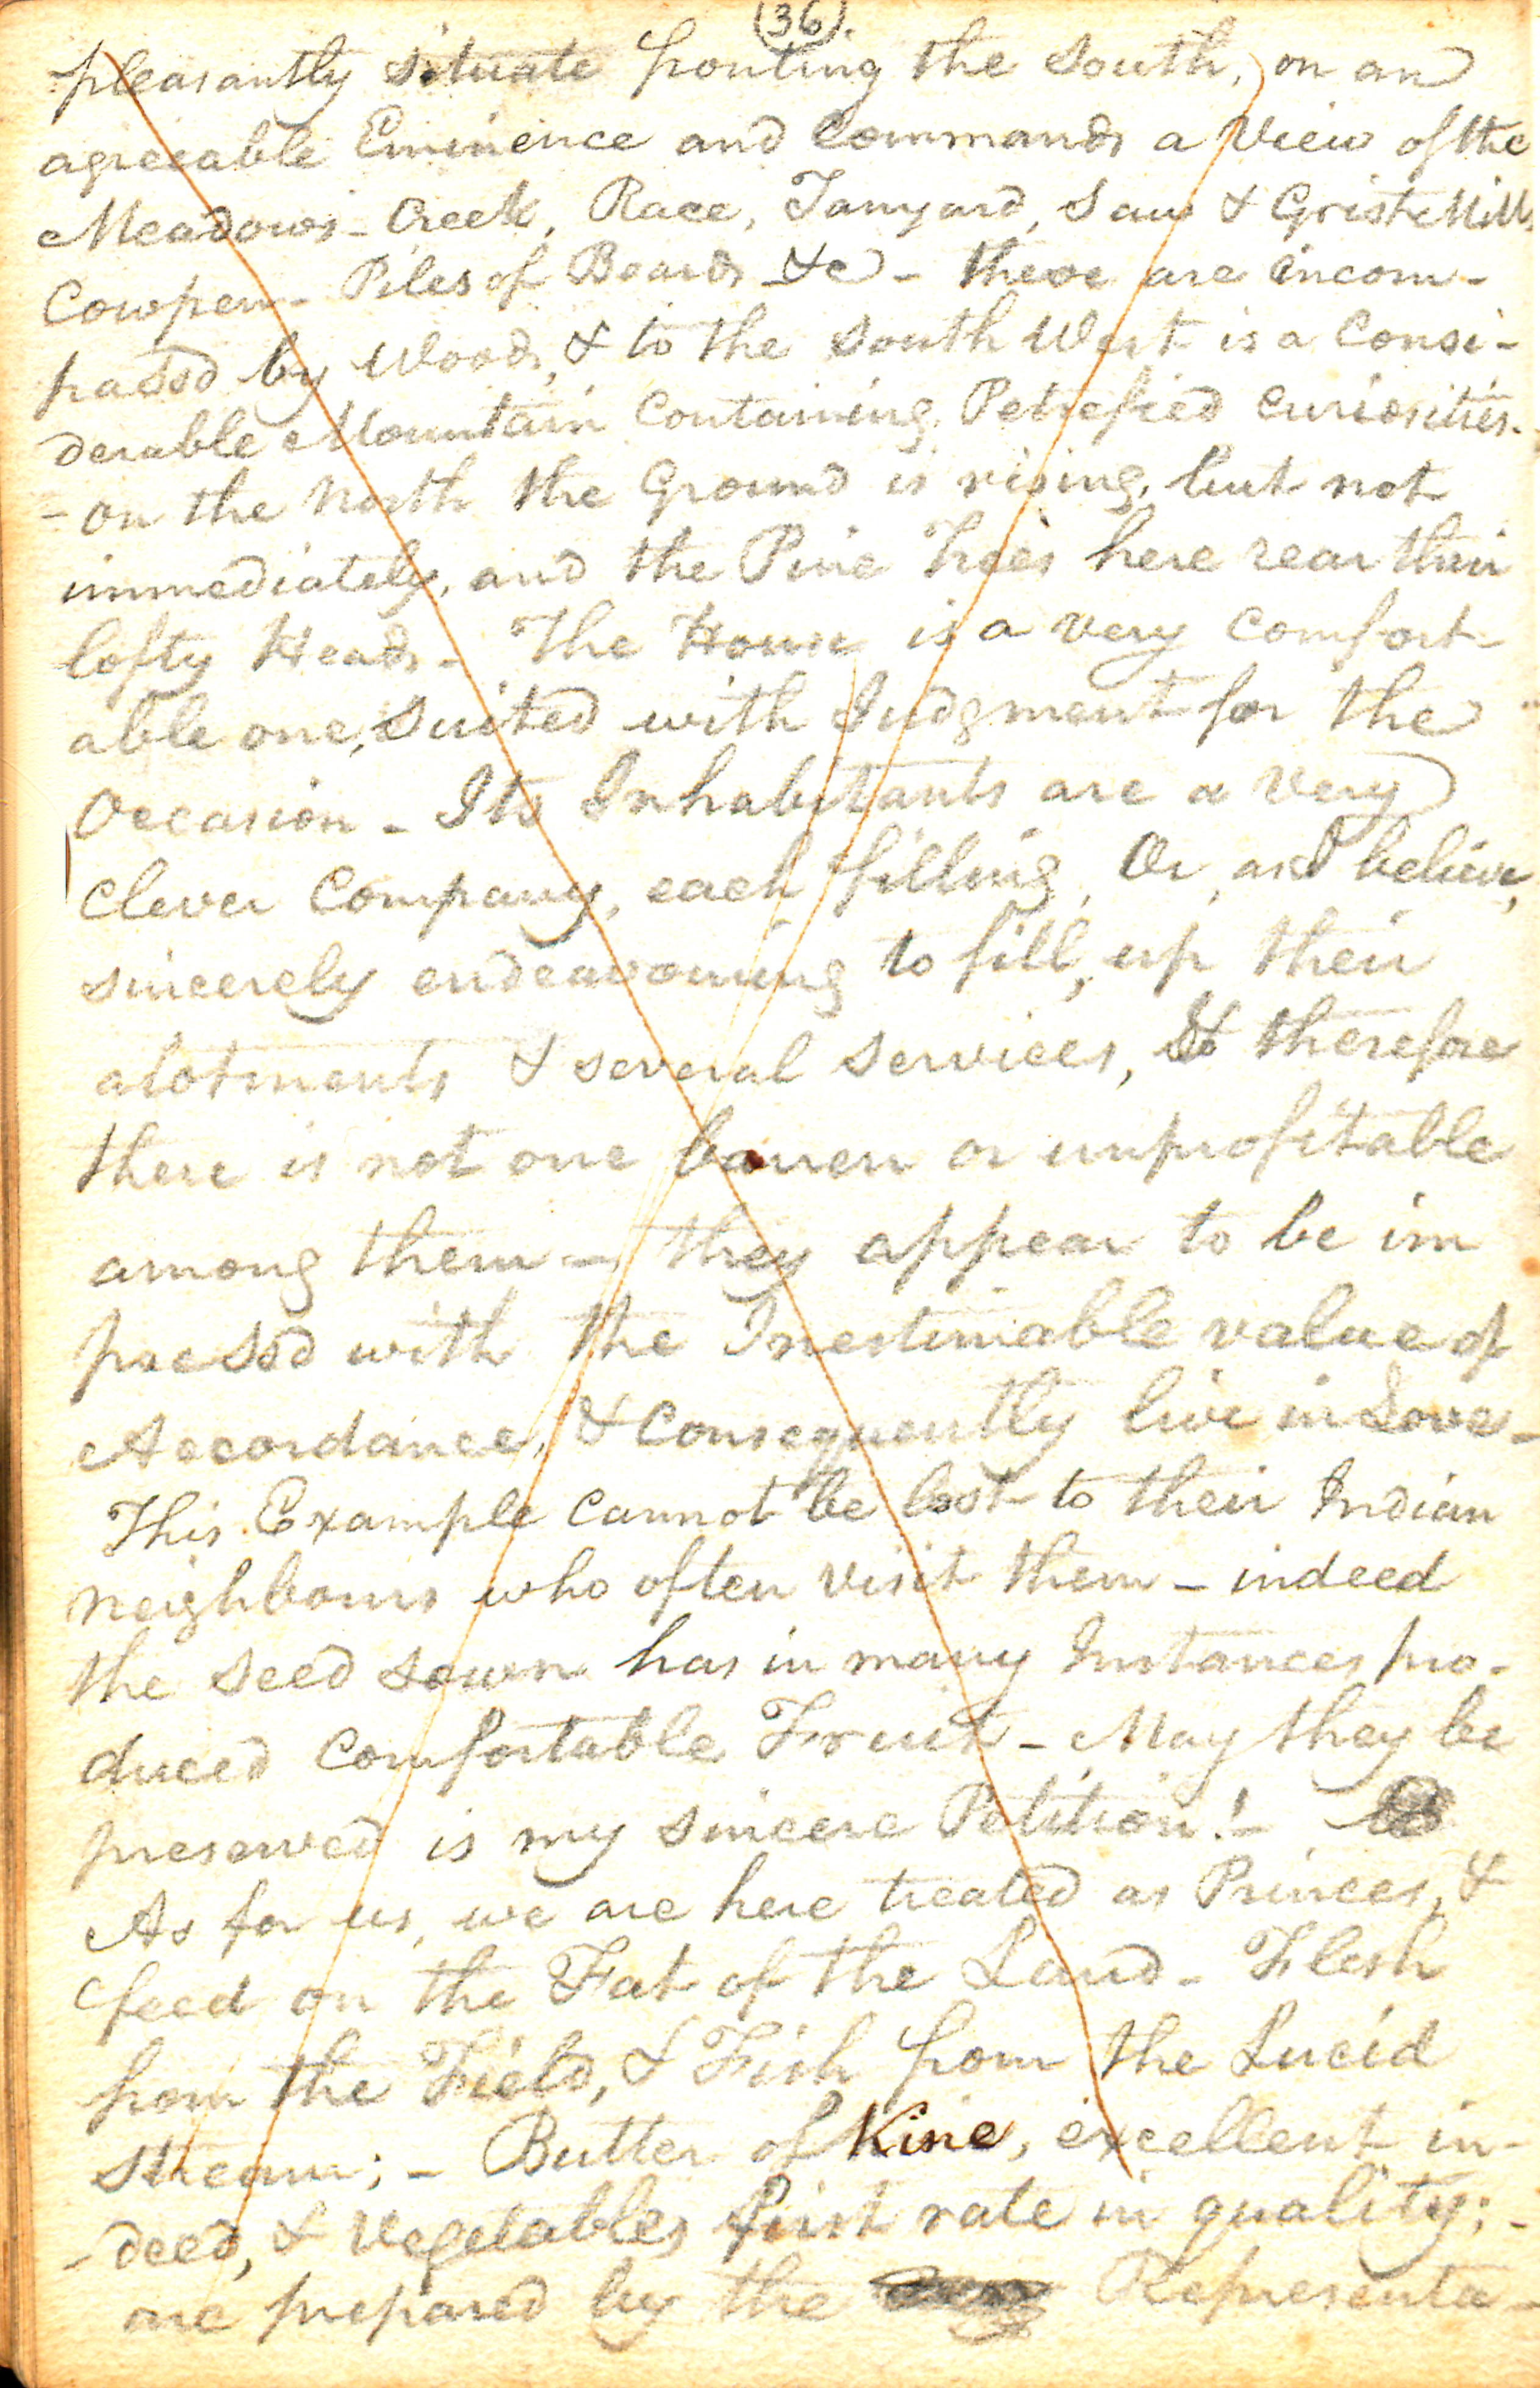 (36).
pleasantly situate fronting the South, on an
agreeable Eminence and Commands a View of the
Meadows - Creek, Race, Tanyard, Saw & Grist Mills,
Cowpen - Piles of Boards &c - these are incom-
passd by Woods, & to the South West is a Consi-
derable Mountain Containing Petrefied Curiosities.
- on the North the Ground is rising, but not
immediately, and the Pine Trees here rear their
lofty Heads - The House is a very Comfort-
able one, Suited with Judgment for the
Occasion - Its Inhabitants are a very
Clever Company, each filling, Or, as I believe,
sincerely endeavouring to fill, up their
alotments & several Services, & therefore
there is not one barren or unprofitable
among them - they appear to be im
pressd with the Inestimable value of
Accordance, & Consequently live in Love -
This Example Cannot be lost to their Indian
Neighbours who often Visit them - indeed
the Seed sown has in many Instances pro-
duced Comfortable Fruit - May they be
preserved is my sincere Petition! -
As for us, we are here treated as Princes, &
feed on the Fat of the Land - Flesh
from the Field, & Fish from the Lucid
Stream; - Butter of Kine, excellent in-
- deed, & Vegetables first rate in quality; -
are prepared by the Representa-